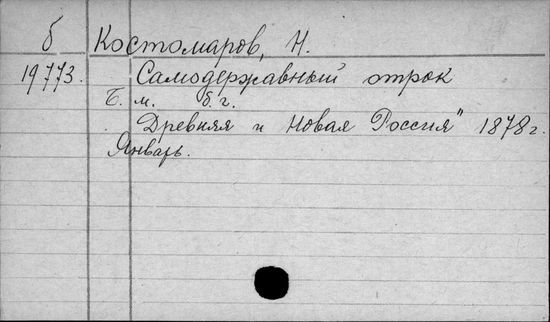 б Костомаров, Н.
19773. Самодержавный отрок
Б. м. б. г.
„Древняя и Новая Россия" 1878 г.
Январь.